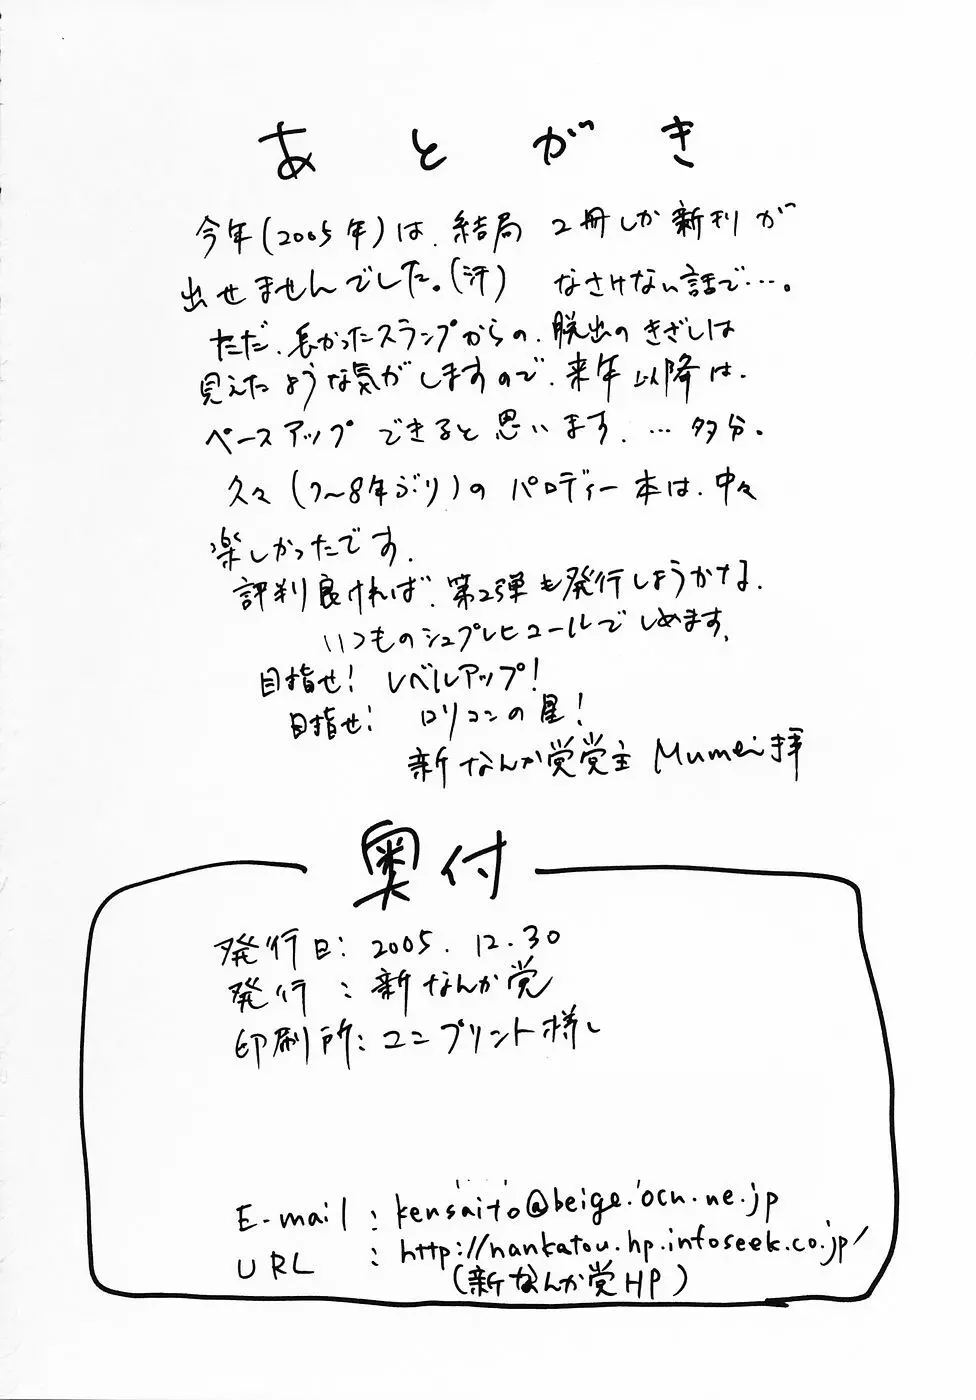 あとがき
今年(2005年)は、結局 2冊しか新刊が
出せませんでした。(汗) なさけない話で…。
ただ、長かったスランプからの、脱出のきざしは
見えたような気がしますので、来年以降は、
ペースアップできると思います、…多分。
久々(7〜8年ぶり)のパロディー本は、中々
楽しかったです。
評判良ければ、第2弾も発行しようかな。
いつものシュプレヒコールでしめます。
目指せ! レベルアップ!
目指せ! ロリコンの星!
新なんか党党主 Mumei拝
奥付
発行日: 2005.12.30
発行 : 新なんか党
印刷所: ユニプリント様
E-mail : kensaito@beige.ocn.ne.jp
URL : http://nankatou.hp.infoseek.co.jp/
(新なんか党HP)